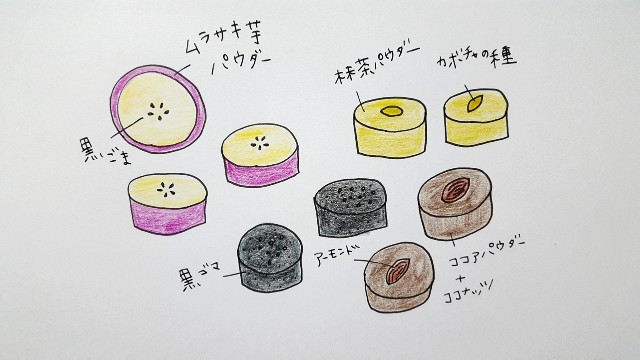 ムラサキ芋
パウダー
黒ごま
抹茶パウダー
カボチャの種
黒ゴマ
アーモンド
ココアパウダー
+
ココナッツ